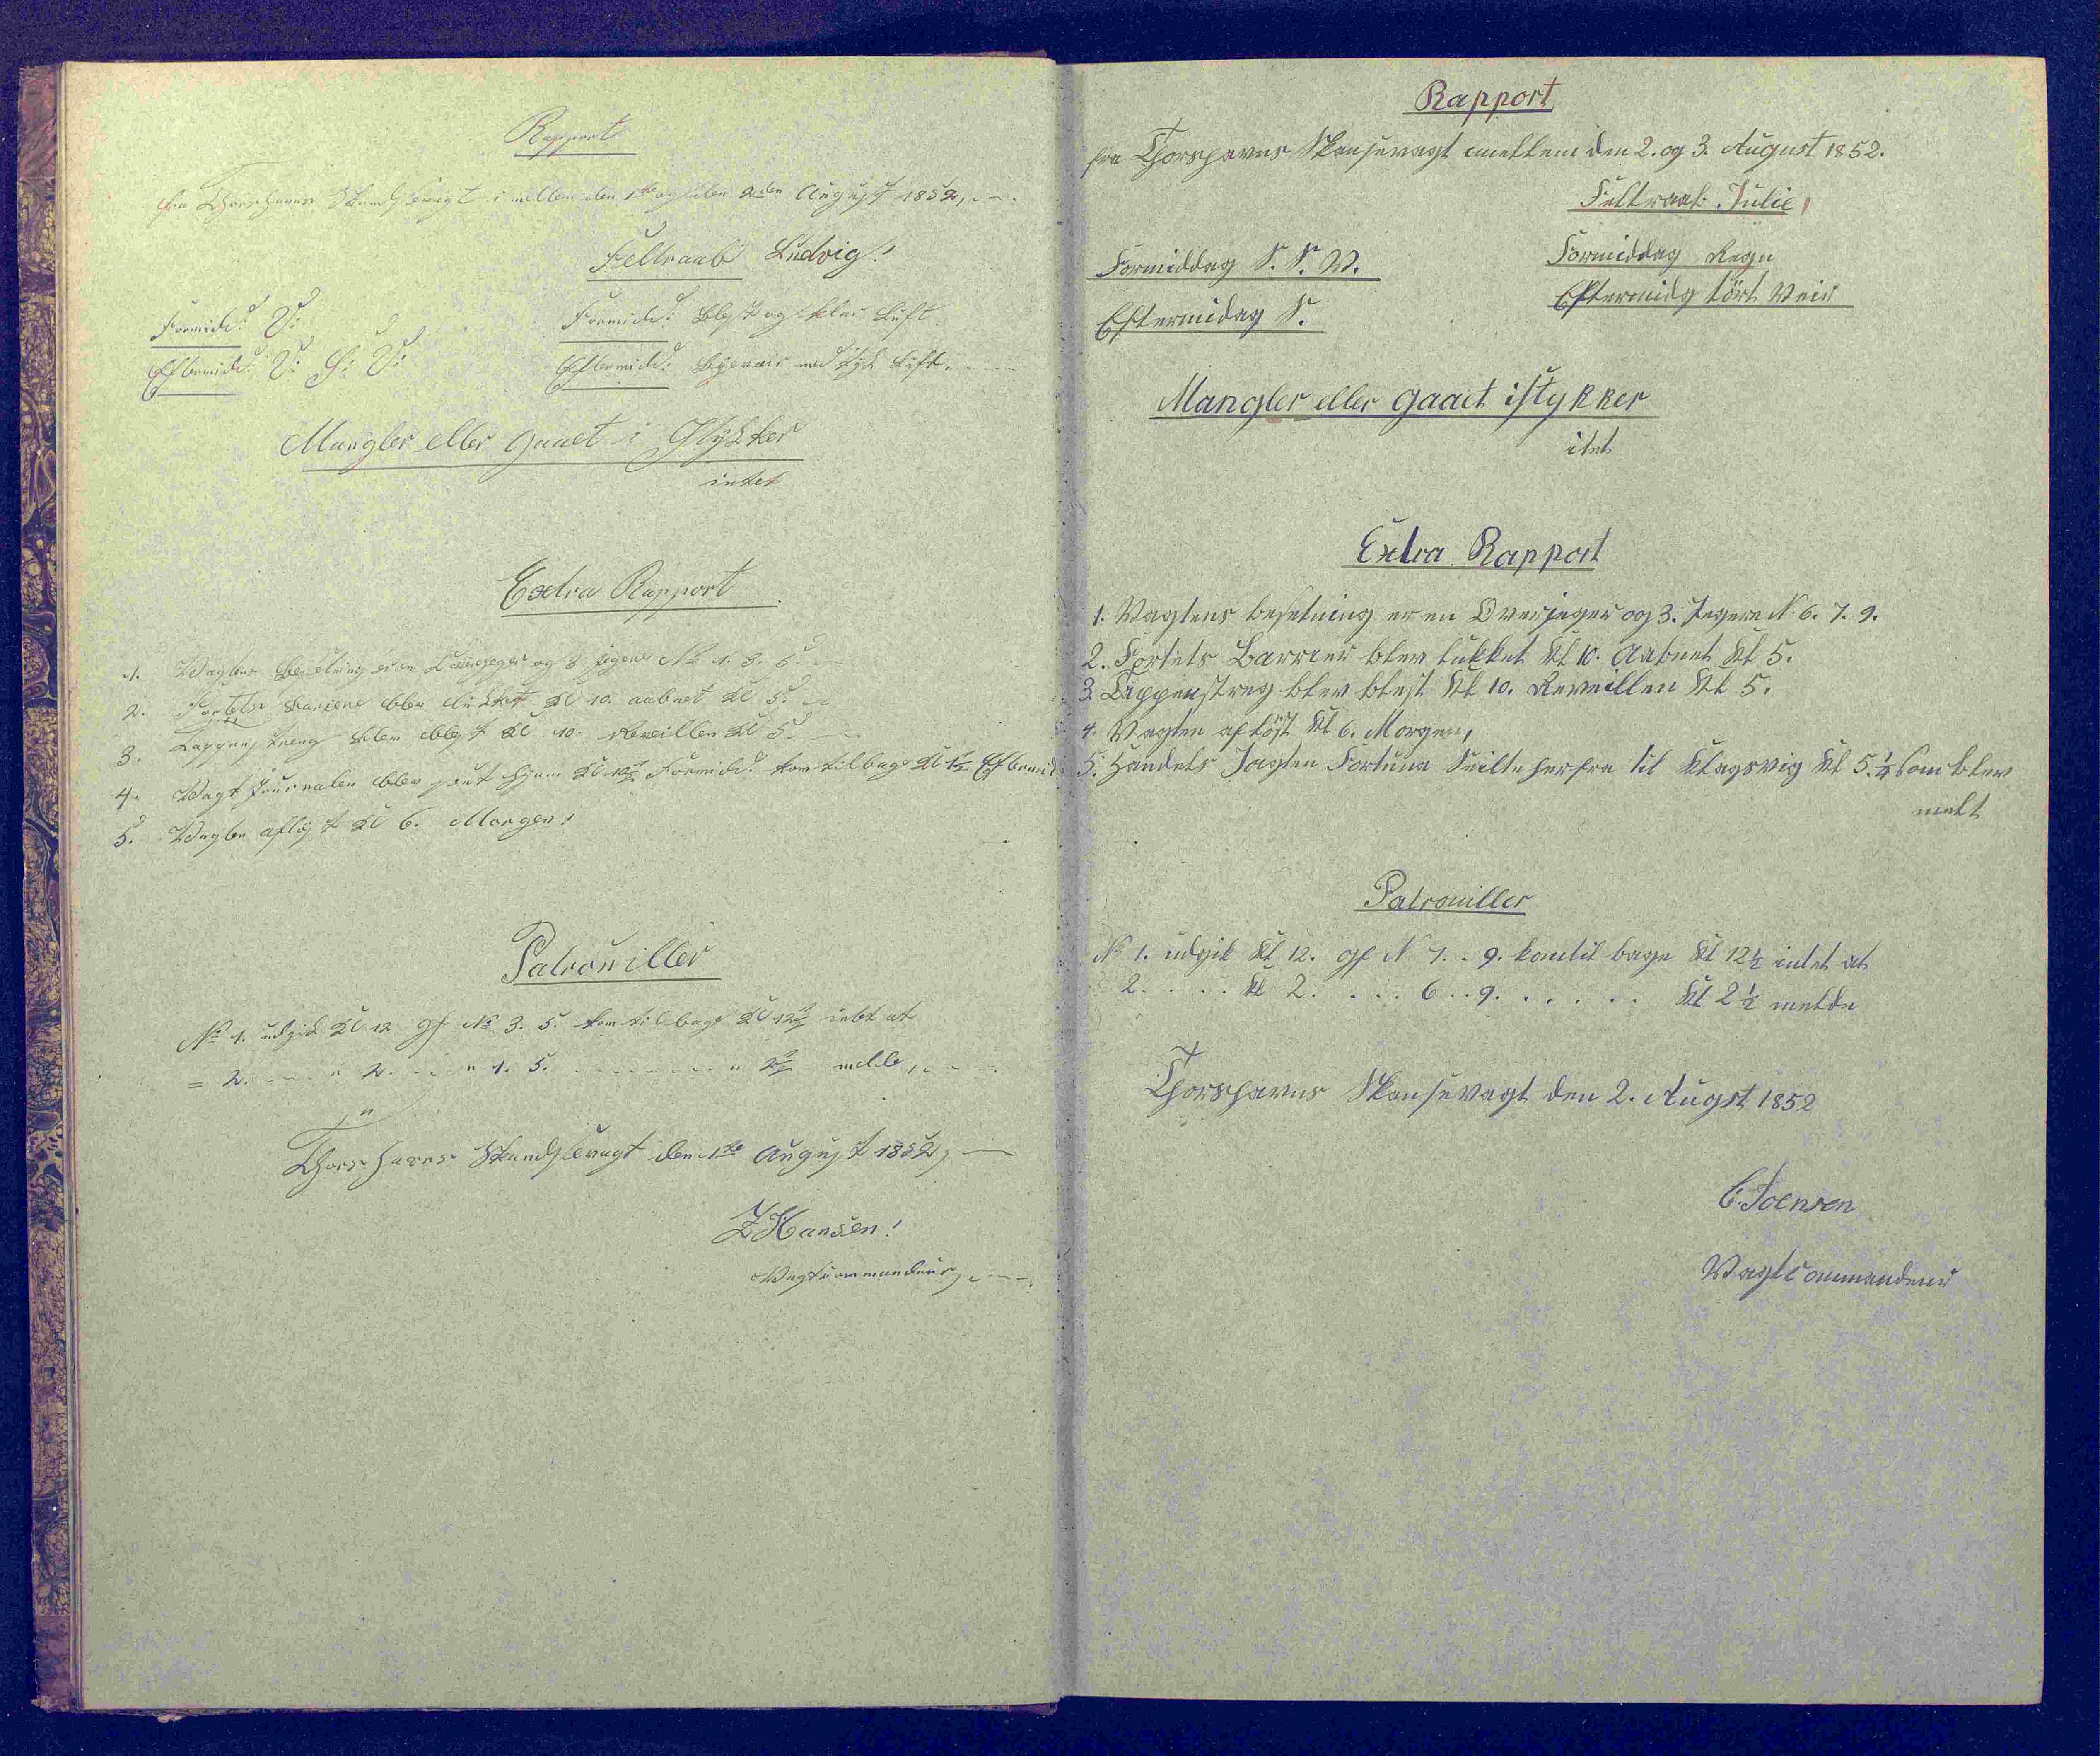 Rapport
fra Thorshavns Skandsevagt imellem den 1te og den 2den August 1852,
Feltraab Ludvig!
Formidd: V:
Formidd: Blest og klar Luft
Eftermidd: V: S: V:
Eftermidd: Bygeveir med tyk Luft.
Mangler eller gaaet i Stykker
intet
Extra Rapport
1. Vagtens Besetning er en Overjeger og 3 jegere No 1. 3. 5.
2. Fortets Bariere blev lukket Kl 10. aabnet Kl 5.
3. Tappenstreg blev blest Kl 10. Reveillen Kl 5.
4. Vagt Journalen blev sent hjem Kl 10½ Formidd. kom tilbage Kl 1½ Eftermid
5. Vagten afløst Kl 6. Morgen!
Patrouiller
No 1. udgik Kl 12 gf No 3. 5. kom tilbage Kl 12½ intet at
= 2. " 2. " 1. 5. " 2½ melde,
Thorshavns Skandsevagt den 1te August 1852,
Z Hansen!
Vagtcommandeur,
Rapport
fra Thorshavns Skansevagt mellem den 2. og 3. August 1852.
Feltraab. Julie,
Formiddag S. S. W.
Formiddag Regn
Eftermidag S.
Eftermidg tört Veir
Mangler eller gaaet istykker
itet
Extra Rapport
1. Vagtens besetning er en Overjeger og 3. Jegere N. 6. 7. 9.
2. Fortets Barrier blev lukket Kl 10. Aabnet Kl 5.
3. Tappenstreg blev blest Kl 10. Reveillen Kl 5.
4. Vagten aflöst Kl 6. Morgen,
5. Handels Jagten Fortuna Seilte herfra til Klagsvig Kl 5.¼ Som blev
melt
Patrouiller
No 1. udgik Kl 12. gf N 7. . 9. kom til bage Kl 12½ intet at
2. . . . Kl 2. . . . 6 . . 9. . . . . . Kl 2½ melde
Thorshavns Skansevagt den 2. Augst 1852
C. Joensen
Vagtcommandeur